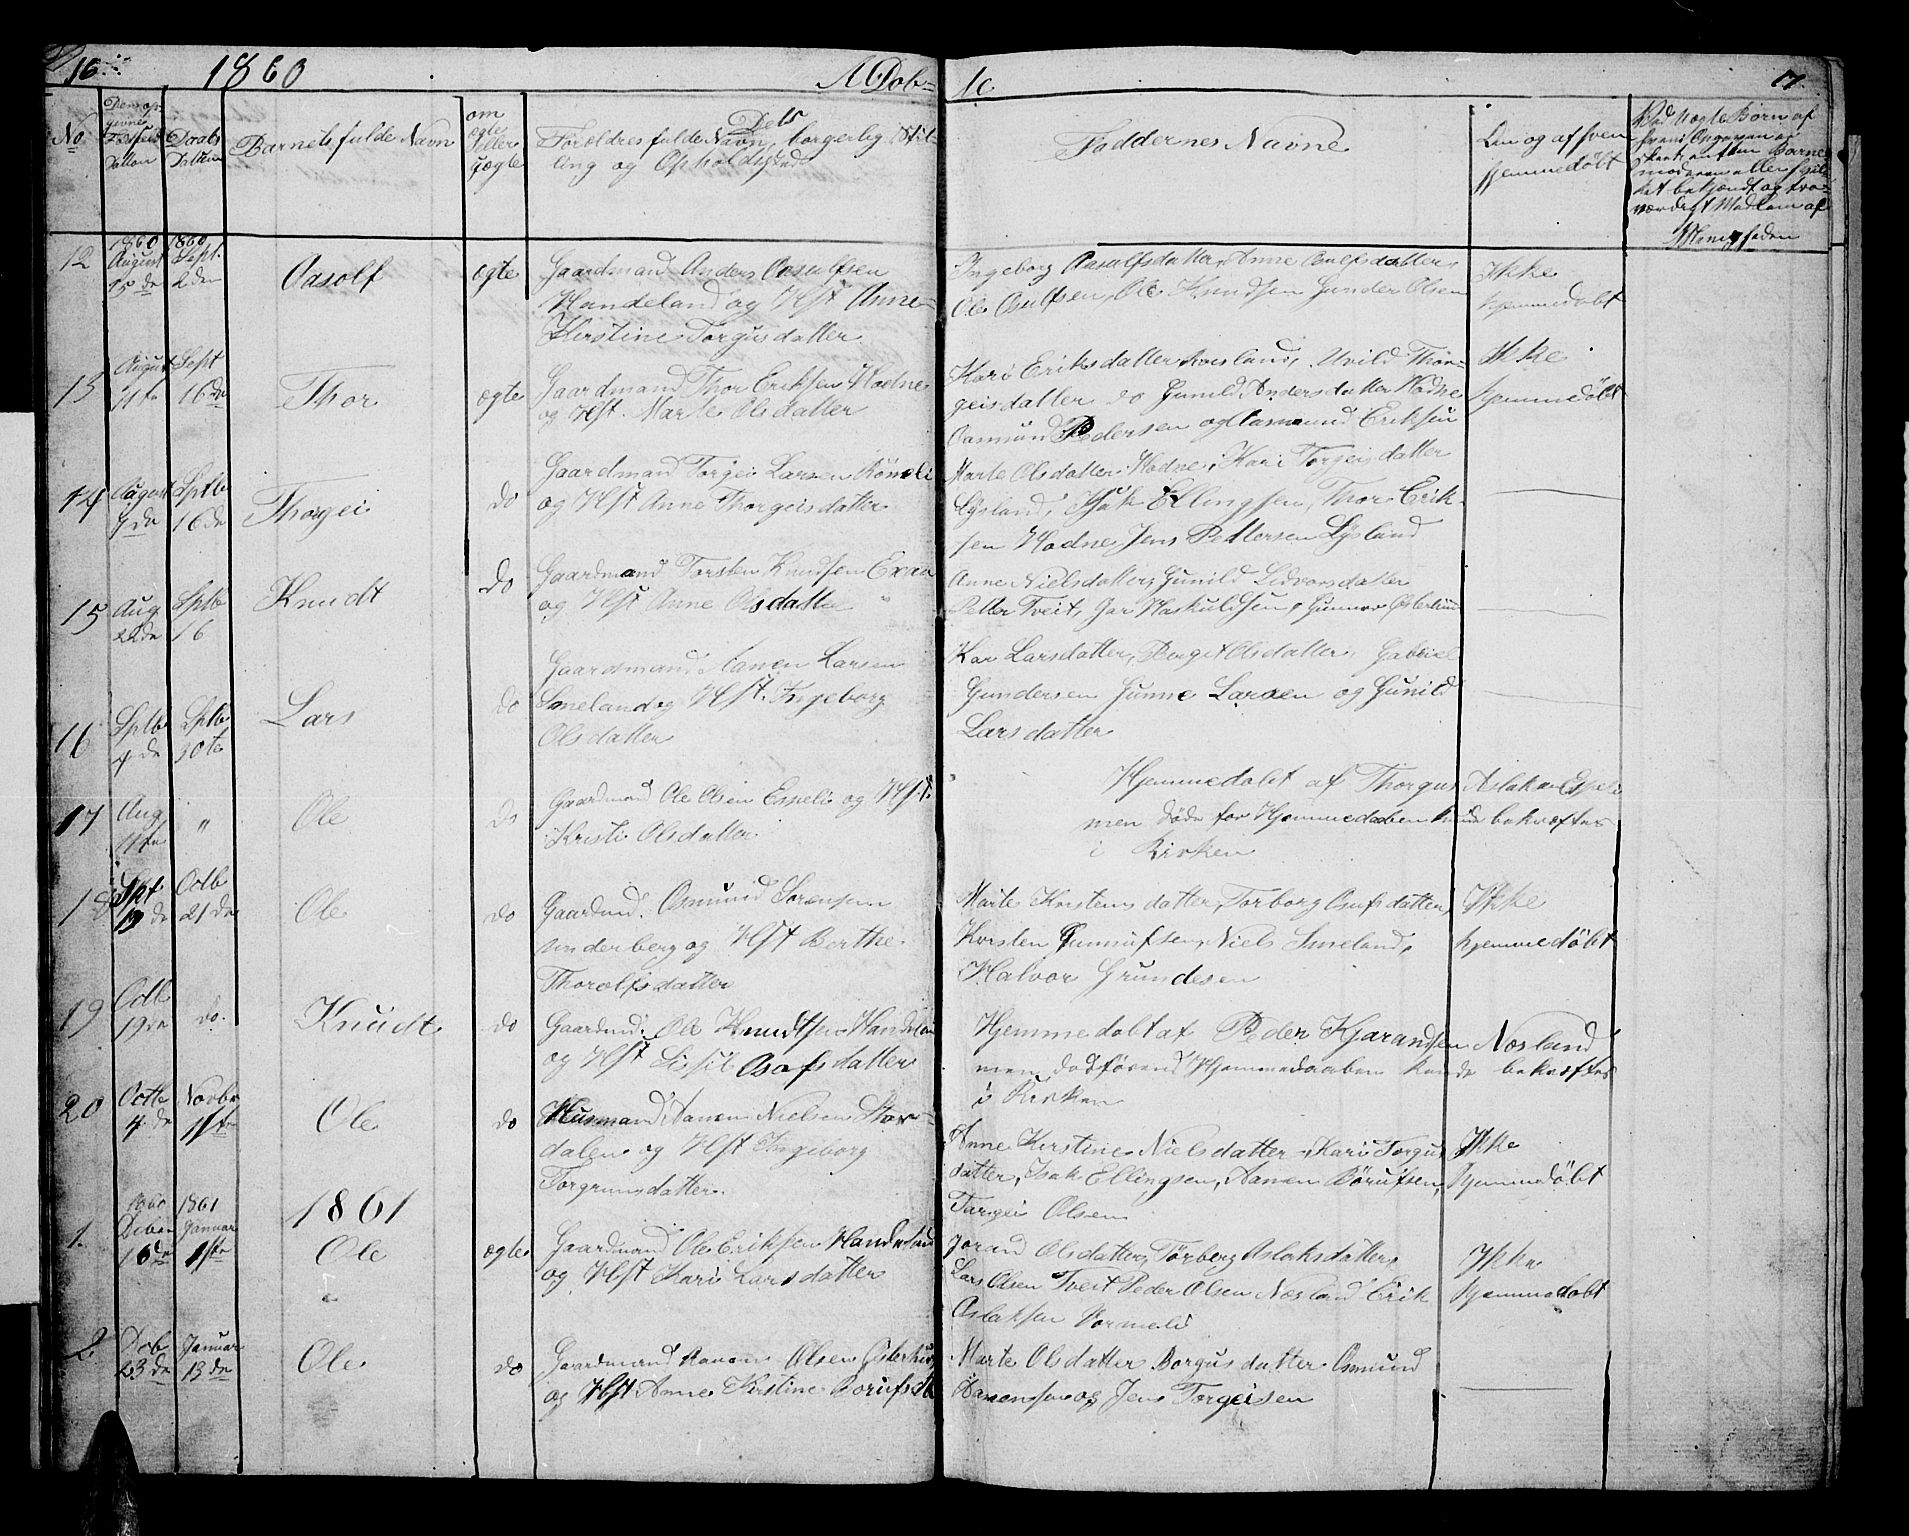 16 1860 A Dob= te 17
No
Dens op-
givne
Fødsels
Datten
Daabs
Datten
Barnets fulde Navn
om
ægte
eller
uægte
Dets
Forældres fulde Navn, borgerlig Stil-
ling og Opholdssted
Faddernes Navne
Om og af hvem
hjemmedøbt
Ved Uægte Børn af
hvem Opgaven er
skeet, enten Barne
moderen eller
ket bekjendt og tro-
værdigt Medlem af
Menigheden
12
1860
August
15de
1860
Sept.
2den
Oasolf
ægte
Gaardmand Anders Oasulfsen
Handeland og Hst Anne
Kirstine Torgusdatter
Ingeborg Oasulfsdatter, Anne Osulfsdatter
Ole Osulfsen, Ole Knudsen Gunder Olsen
Ikke
hjemmedobt
13
August
11te
Sept
16de
Thor
ægte
Gaardmand Thor Eriksen Hodne
og Hst. Marte Olsdatter
Kari Eriksdatter Roesland, Uvild Thor-
geisdatter do Gunild Andersdatter Hodne
Oasmund Pedersen og Oasmund Eriksen
Ikke
hjemmedöbt
14
August
7de
Sptbr
16de
Thorgei
do
Gaardmand Torgei Larsen Röneli
og Hst Anne Thorgeisdatter
Marte Olsdatter Hodne, Kari Torgeisdatter
Lysland, Isak Ellingsen, Thor Erik-
sen Hodne Jens Pettersen Lysland
15
Aug
22de
Sptb
16
Knudt
do
Gaardmand Torsten Knudsen
og Hst Anne Olsdatter
Anne Nielsdatter, Gunild Lidvorsdatter
Petter Tveit, Haskuldsen, Gunner
16
Sptb
4de
Sptb
30te
Lars
do
Gaardmand Aanen Larsen
Smeland og Hst. Ingeborg
Olsdatter
Kari Larsdatter, Berget Olsdatter, Gabriel
Gundersen Gunne Larsen og Gunild
Larsdatter
17
Aug
11te
"
Ole
do
Gaardmand Ole Olsen Espeli og Hst.
Kristi Olsdatter
Hjemmedøbt af Thorgus Aslaksen Espeli
men døde før Hjemmedaaben kunde bekræftes
i Kirken
18
Spt
13de
Octb
21de
Ole
do
Gaardmd. Osmund Sørensen
underberg og Hst Berthe
Thorolfsdatter
Marte Korstensdatter, Torborg Osufsdatter,
Korsten Gunnufsen, Niels Smeland,
Halvor Grundesen
Ikke
hjemmedöbt
19
Octb
19de
do.
Knudt
do
Gaardmd. Ole Knudtsen Handeland
og Hst Sissil Osofsdatter
Hjemmedøbt af Peder Kjarandsen Næsland
men død förend Hjemmedaaben kunde bekræftes
i Kirken
20
Octbr
4de
Novbr
1ste
Ole
do
Husmand Aanen Nielsen Stor-
dalen og Hst Ingeborg
Torgrimsdatter.
Anne Kirstine Nielsdatter, Kari Torgus
datter, Isak Ellingsen, Aanen Börufsen,
Torgei Olsen
Ikke
hjemmedöbt
1861
1.
1860
Debr
16de
1861
Januar
1ste
Ole
ægte
Gaardmand Ole Eriksen Handeland
og Hst Kari Larsdatter
Jorand Olsdatter, Törberg Aslaksdatter
Lars Olsen Tveit Peder Olsen Næsland Erik
Oslaksen Vormeli
Ikke
hjemmedobt
2.
Deb
23de
Januar
13de
Ole
do
Gaardmand Aanen Olsen Østerhus
og Hst Anne Kirstine Borufsdt
Marte Olsdatter Borgusdatter Osmund
Aanensen og Jens Torgeisen